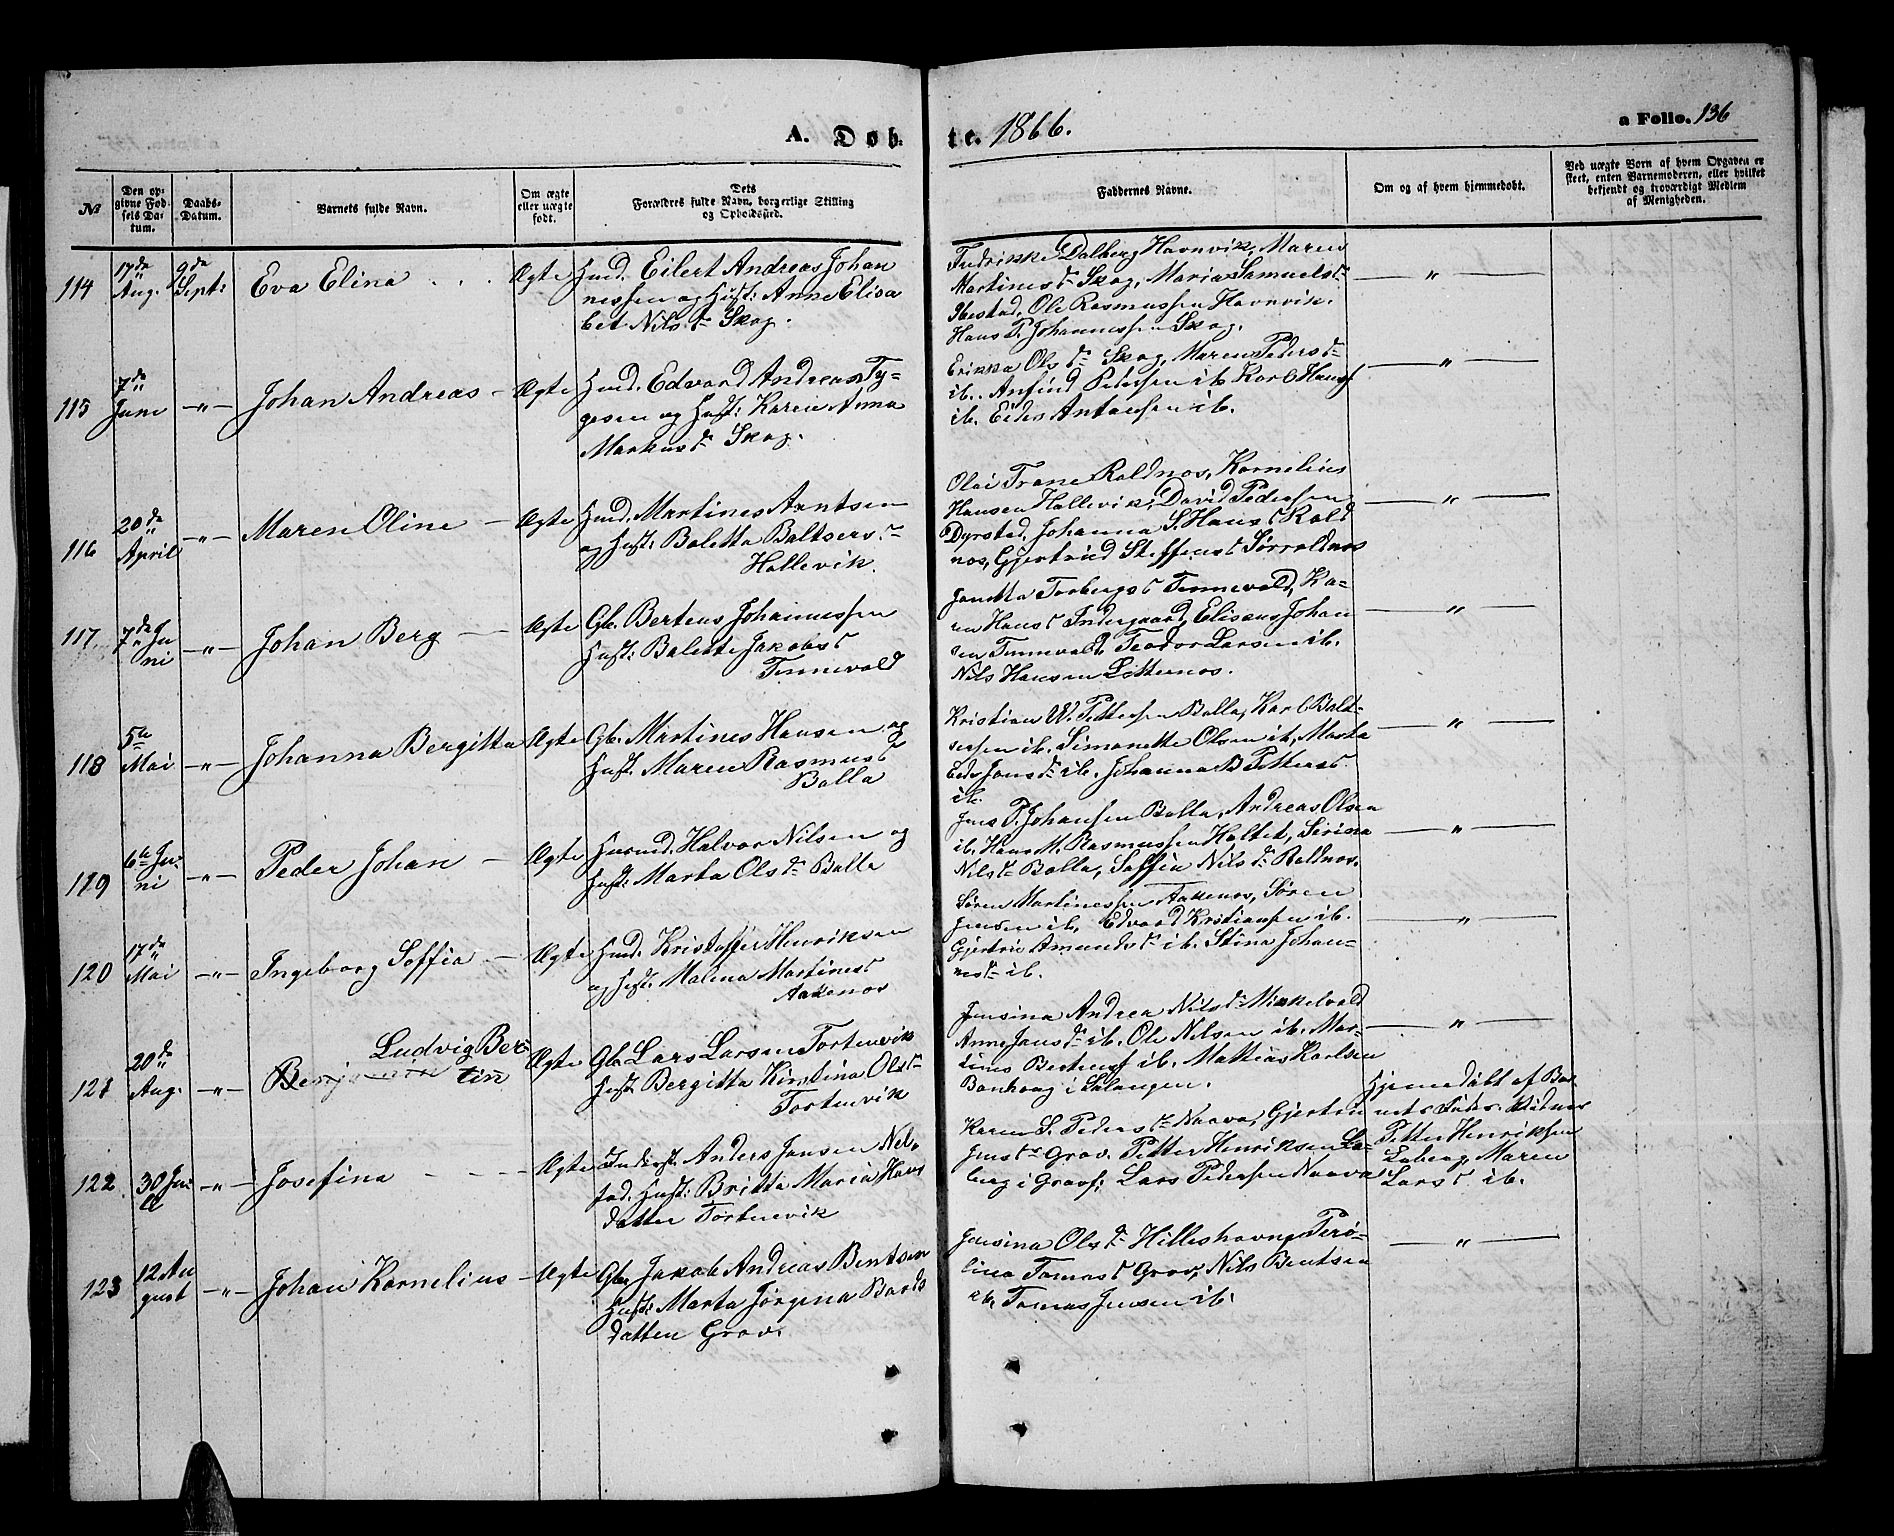 A. Døb-
te. 1866.
a Folio. 136
№
Den op-
givne Fød-
sels Da-
tum.
Daabs-
Datum.
Barnets fulde Navn.
Om ægte
eller uægte
født.
Dets
Forældres fulde Navn, borgerlige Stilling
og Opholdssted.
Faddernes Navne.
Om og af hvem hjemmedøbt.
Ved uægte Børn af hvem Opgaven er
skeet, enten Barnemoderen, eller hvilket
bekjendt og troværdigt Medlem
af Menigheden.
114
17de
Aug.
9de
Sept:
Eva Elina
Ægte
Husd. Eilert Andreas Johan
nessen og Hust: Anne Elisa
bet Nilsdr Skog.
Fredrikke Dalberg Havnvik, Maren
Martinesdr Skog, Maria Samuelsdr
Ibestad, Ole Rasmussen Havnvik.
Hans P. Johannessen Skog.
— " —
115
7de
Juni
— " —
Johan Andreas
Ægte
Husd. Edvard Andreas Ty-
gesen og Hust: Karen Anna
Markusdr Skog.
Erikka Olsdr Skog, Maren Pedersdr
ib. Anfind Petersen ib. Karl Hansen
ib. Eider Antonsen ib.
— " —
116
20de
April
— " —
Maren Oline
Ægte
Husd. Martines Arntsen
og Hust: Baletta Baltsersdr
Hallevik.
Olai Trane Roldnos, Kornelius
Hansen Hallevik, David Pedersen
Dyrstad, Johanna S. Hansd Rold
nos, Gjertrud Steffensd Sørroldnos
— " —
117.
7de Ju
ni
— " —
Johan Berg
Ægte
Gb. Berteus Johannessen
Hust: Balette Jakobsd
Tennevold
Janetta Torbergsd Tennevold, Ka-
ren Hansd Indergaard, Eliseus Johan
sen Tennevold, Teodor Larsen ib.
Nils Hansen
— " —
118
5te
Mai
— " —
Johanna Bergitta
Ægte
Gb. Martines Hansen og
Hust. Maren Rasmusd
Bolla
Kristian W. Pettersen Bolla, Karl Balt-
sersen ib. Simonette Olsen ib, Marta
Jensdr ib. Johanna B Pettersd
ib.
— " —
119
6te Ju-
ni
— " —
Peder Johan
Ægte
Husmd. Halvor Nilsen og
Hust: Marta Olsdr Bolle
Jens P. Johansen Bolla, Andreas Olsen
ib. Hans M. Rasmussen Holtet, Serina
Nilsdr Bolla, Soffia Nilsdr Roldnos.
— " —
120
17de
Mai
— " —
Ingeborg Soffia
Ægte
Husd. Kristoffer Henriksen
og Hust: Malena Martinesd
Aakenos
Søren Martinessen Aakenos, Søren
Jensen ib, Edvard Kristiansen ib.
Gjertrud Amundsdr ib. Stina Johan-
nesdr ib.
— " —
121
20de
Aug.
— " —
Ludvig Ber-
Benjamin tin
Ægte
Gb. Lars Larsen Tortenvik
Hust Bergitta Kirstina Olsdr
Tortenvik
Jensina Andrea Nilsdr Mikkelvold
Anne Jansdr ib. Ole Nilsen ib. Mar-
tines Berteusen ib. Mattias Karlsen
Bonhaug i Salangen.
— " —
122
30 Ju-
li
— " —
Josefina
Ægte
Anders Jansen Nel-
fod. Hust: Britta Maria Hans
datter Tortenvik
Karen S. Pedersdr Naava, Gjertru
Jensdr Grov. Petter Henriksen La-
berg i Gravf; Lars Pedersen Naava
Hjemedøbt af Bar
nets Fader. Vidner
Petter Henriksen
Laberg, Maren
Larsd ib.
123
12 Au
gust
— " —
Johan Kornelius
Ægte
Gb. Jakob Andreas Bentsen
Hust: Marta Jørgena Bards
datter Grov.
Jensina Olsdr Hilleshavn, Perø-
lina Tomasd Grov, Nils Bentsen
ib. Tomas Jensen ib.
— " —